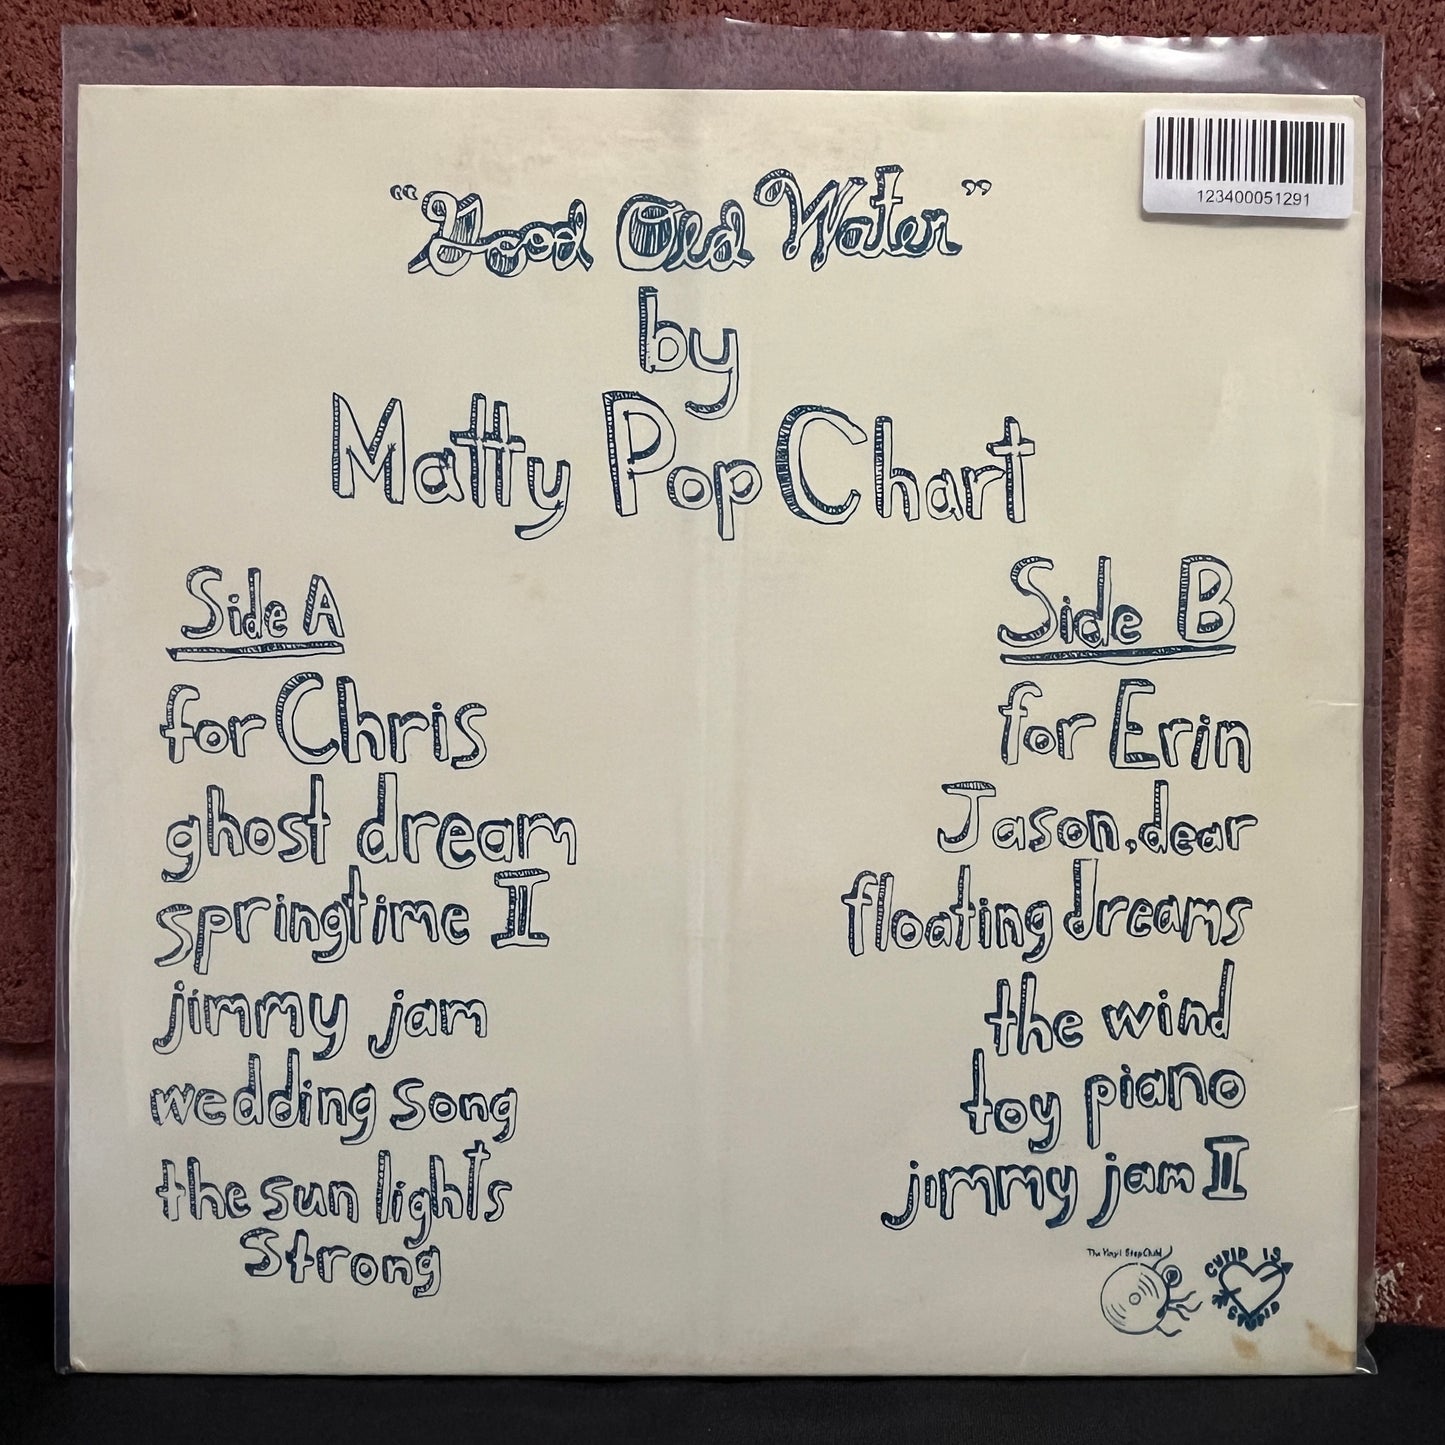 123400051291
“Good Old Water”
by
Matty Pop Chart
Side A
for Chris
ghost dream
springtime II
jimmy jam
wedding song
the sun lights
Strong
Side B
for Erin
Jason, dear
floating dreams
the wind
toy piano
jimmy jam II
The Vinyl StepChild
CUPID IS
STUPID